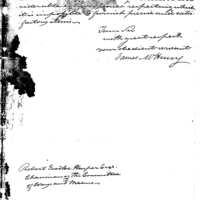 respecting which
it is impossible to furnish precise and satis
factory items.
I am Sir
with great respect
your obedient servant
James McHenry
Robert Goodloe Harper Esqr.
Chairman of the Committee
of Ways and Means.